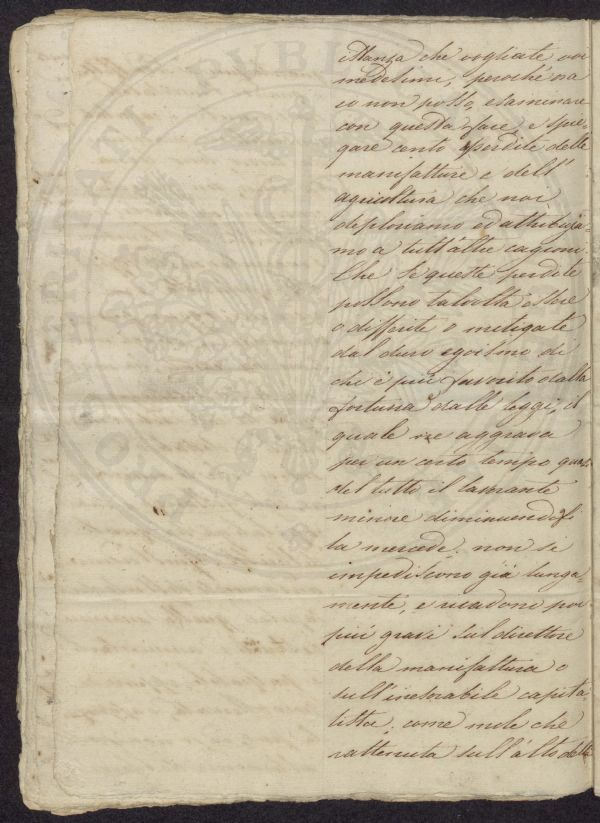 istanza che vogliate voi
medesimi, perochè ora
io non posso, esaminare
con questa face, e spie-
gare cento perdite delle
manifatture e dell'
agricoltura che noi
deploriamo ed attribuia-
mo a tutt'altre cagioni.
Che se queste perdite
possono talvolta essere
o differite o mitigate
dal duro egoismo di
chi è più favorito dalla
fortuna dalle leggi, il
quale ne aggrava
per un certo tempo quasi
del tutto il lavorante
minore diminuendogli
la mercede, non si
impediscono già lunga-
mente, e ricadono poi
più gravi sul direttore
della manifattura o
sull'inesorabile capita-
lista, come mole che
rattenuta sull'alto delle
PRO VERITATI PVBLI